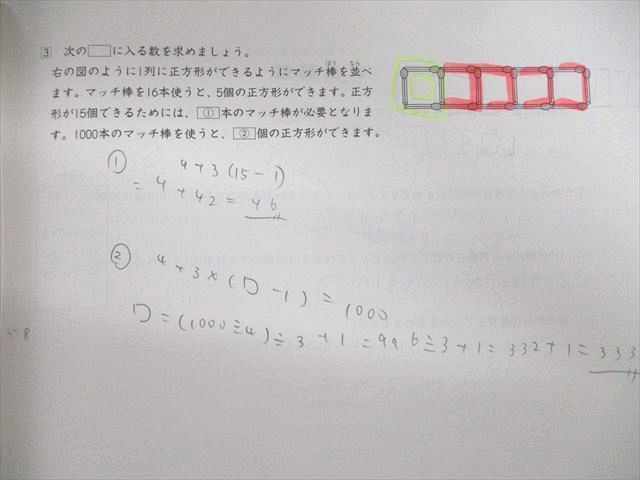 3 次の□に入る数を求めましょう。
右の図のように1列に正方形ができるようにマッチ棒を並べ
ぼう なら
ます。マッチ棒を16本使うと、5個の正方形ができます。正方
形が15個できるためには、①本のマッチ棒が必要となりま
す。1000本のマッチ棒を使うと、②個の正方形ができます。
①
4+3(15-1)
=4+42=46
②
4+3×(□-1)=1000
□=(1000-4)÷3+1=996÷3+1=332+1=333